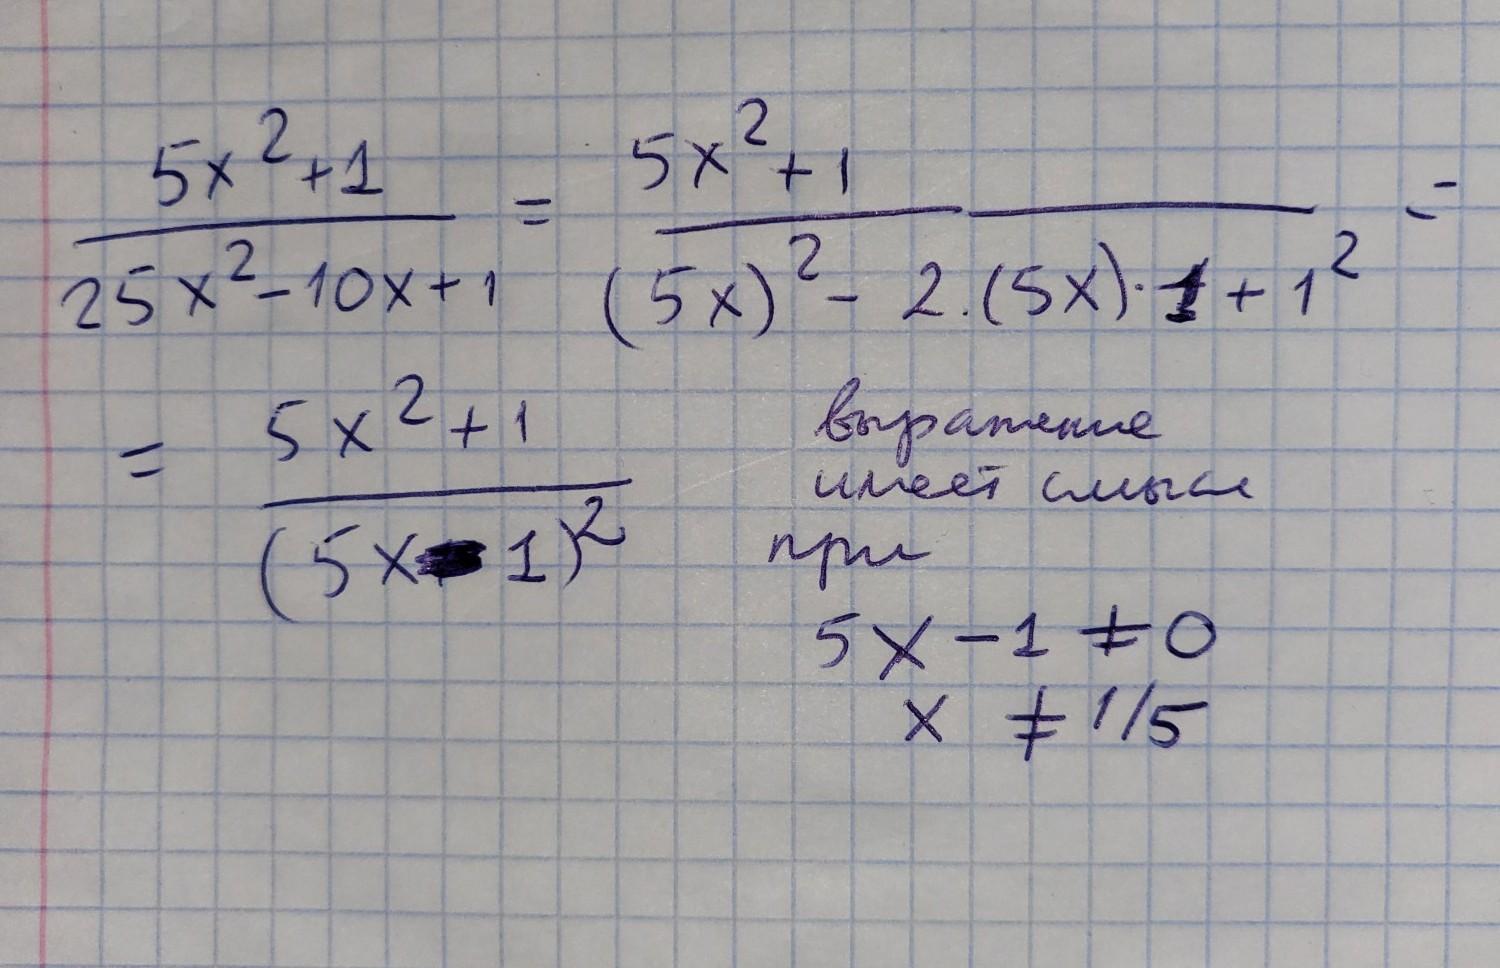 5x²+1
25x²-10x+1
=
5x²+1
(5x)²- 2·(5x)·1+1²
=
=
5x²+1
(5x-1)²
выражение
имеет смысл
при
5x-1≠0
x ≠ 1/5